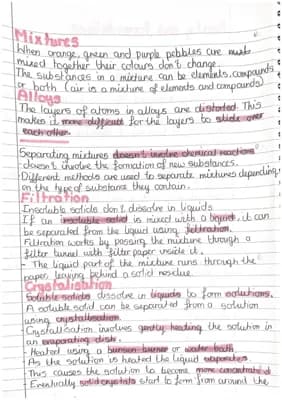 Mixtures
When orange, green and purple pebbles are
mixed together their colours don't change.
The substances in a mixture can be elements, compounds
or both (air is a mixture of elements and compounds)
Alloys
The layers of atoms in alloys are distorted. This
makes it more difficult for the layers to slide over
each other.
Separating mixtures doesn't involve chemical reactions
doesn't involve the formation of new substances.
Different methods are used to separate mixtures depending
on the type of substance they contain.
Filtration
Insoluble solids don't dissolve in liquids
If an insoluble solid is mixed with a liquid, it can
be separated from the liquid using filtration.
Filtration works by passing the mixture through a
filter funnel with filter paper inside it.
- The liquid part of the mixture runs through the
paper leaving behind a solid residue.
Crystallisation
Soluble solids dissolve in liquids to form solutions.
A soluble solid can be separated from a solution
using crystallisation.
Crystallisation involves gently heating the solution in
an evaporating dish.
- Heated using a bunsen burner or water bath
As the solution is heated the liquid evaporates.
This causes the solution to become more concentrated
- Eventually solid crystals start to form from around the